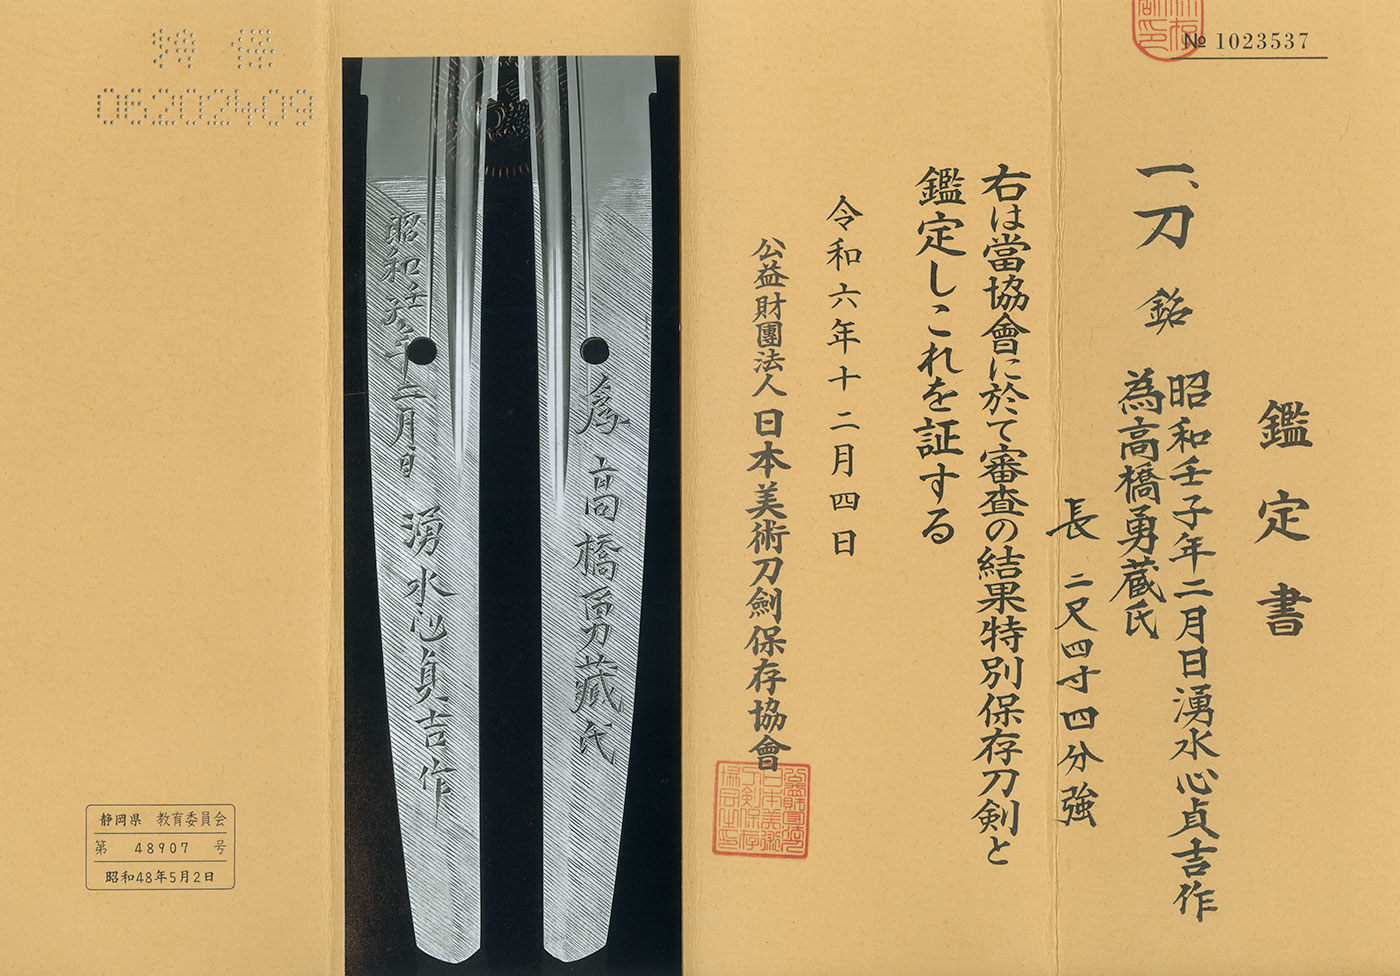 № 1023537
鑑定書
一、刀 銘 昭和壬子年二月日湧水心貞吉作
為高橋勇蔵氏
長 二尺四寸四分強
右は當協會に於て審査の結果特別保存刀剣と
鑑定しこれを証する
令和六年十二月四日
公益財團法人日本美術刀劍保存協會
為高橋勇蔵氏
昭和壬子年二月日 湧水心貞吉作
特保
06202409
静岡県 教育委員会
第 48907 号
昭和48年5月2日